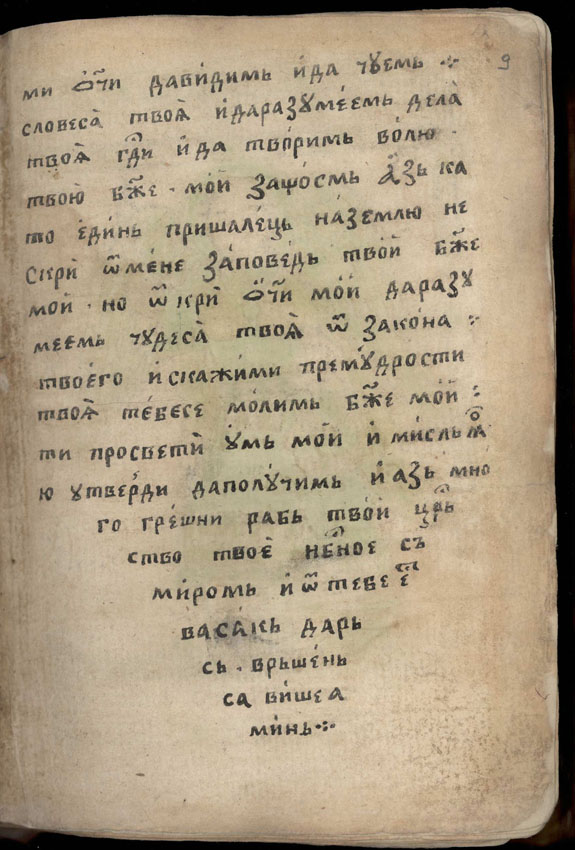 9
ми ѻ҆́чи давѝдимь и҆́да чꙋемь ⁘
словеса̀ твоѧ̀ и҆даразꙋме́емь дела̀
твоѧ̀ гд҇и и҆́да тво́римь во́лю ·
твою̀ бж҃е · мо́й запѡ́смь а҆́зь ка
то е҆ди́нь пришале́ць на́землю не
скрѝ ѿме́не за́пове́дь тво́й бж҃е
мой · но ѿкрѝ ѻ҆́чи мо́й даразꙋ
меемь чꙋдеса̀ твоѧ̀ ѿ зако́на ⁘
твое́го и҆скажи́ми премꙋ́дрости
твоѧ̀ те́бесе мо́лимь бж҃е мо́й :
ти просветѝ ꙋ҆́мь мо́й и҆ ми́сльмⷪ
ю ꙋтве́рди даполꙋ́чимь и҆ а҆зь мно
го гре́шни рабь тво́й цр҇ь
ство твоѐ нб҇ное съ
ми́ромь и҆ ѿтебе ест҇
васа́кь дарь
сь · врьше́нь
са ви́шеа
ми́нь ⁘